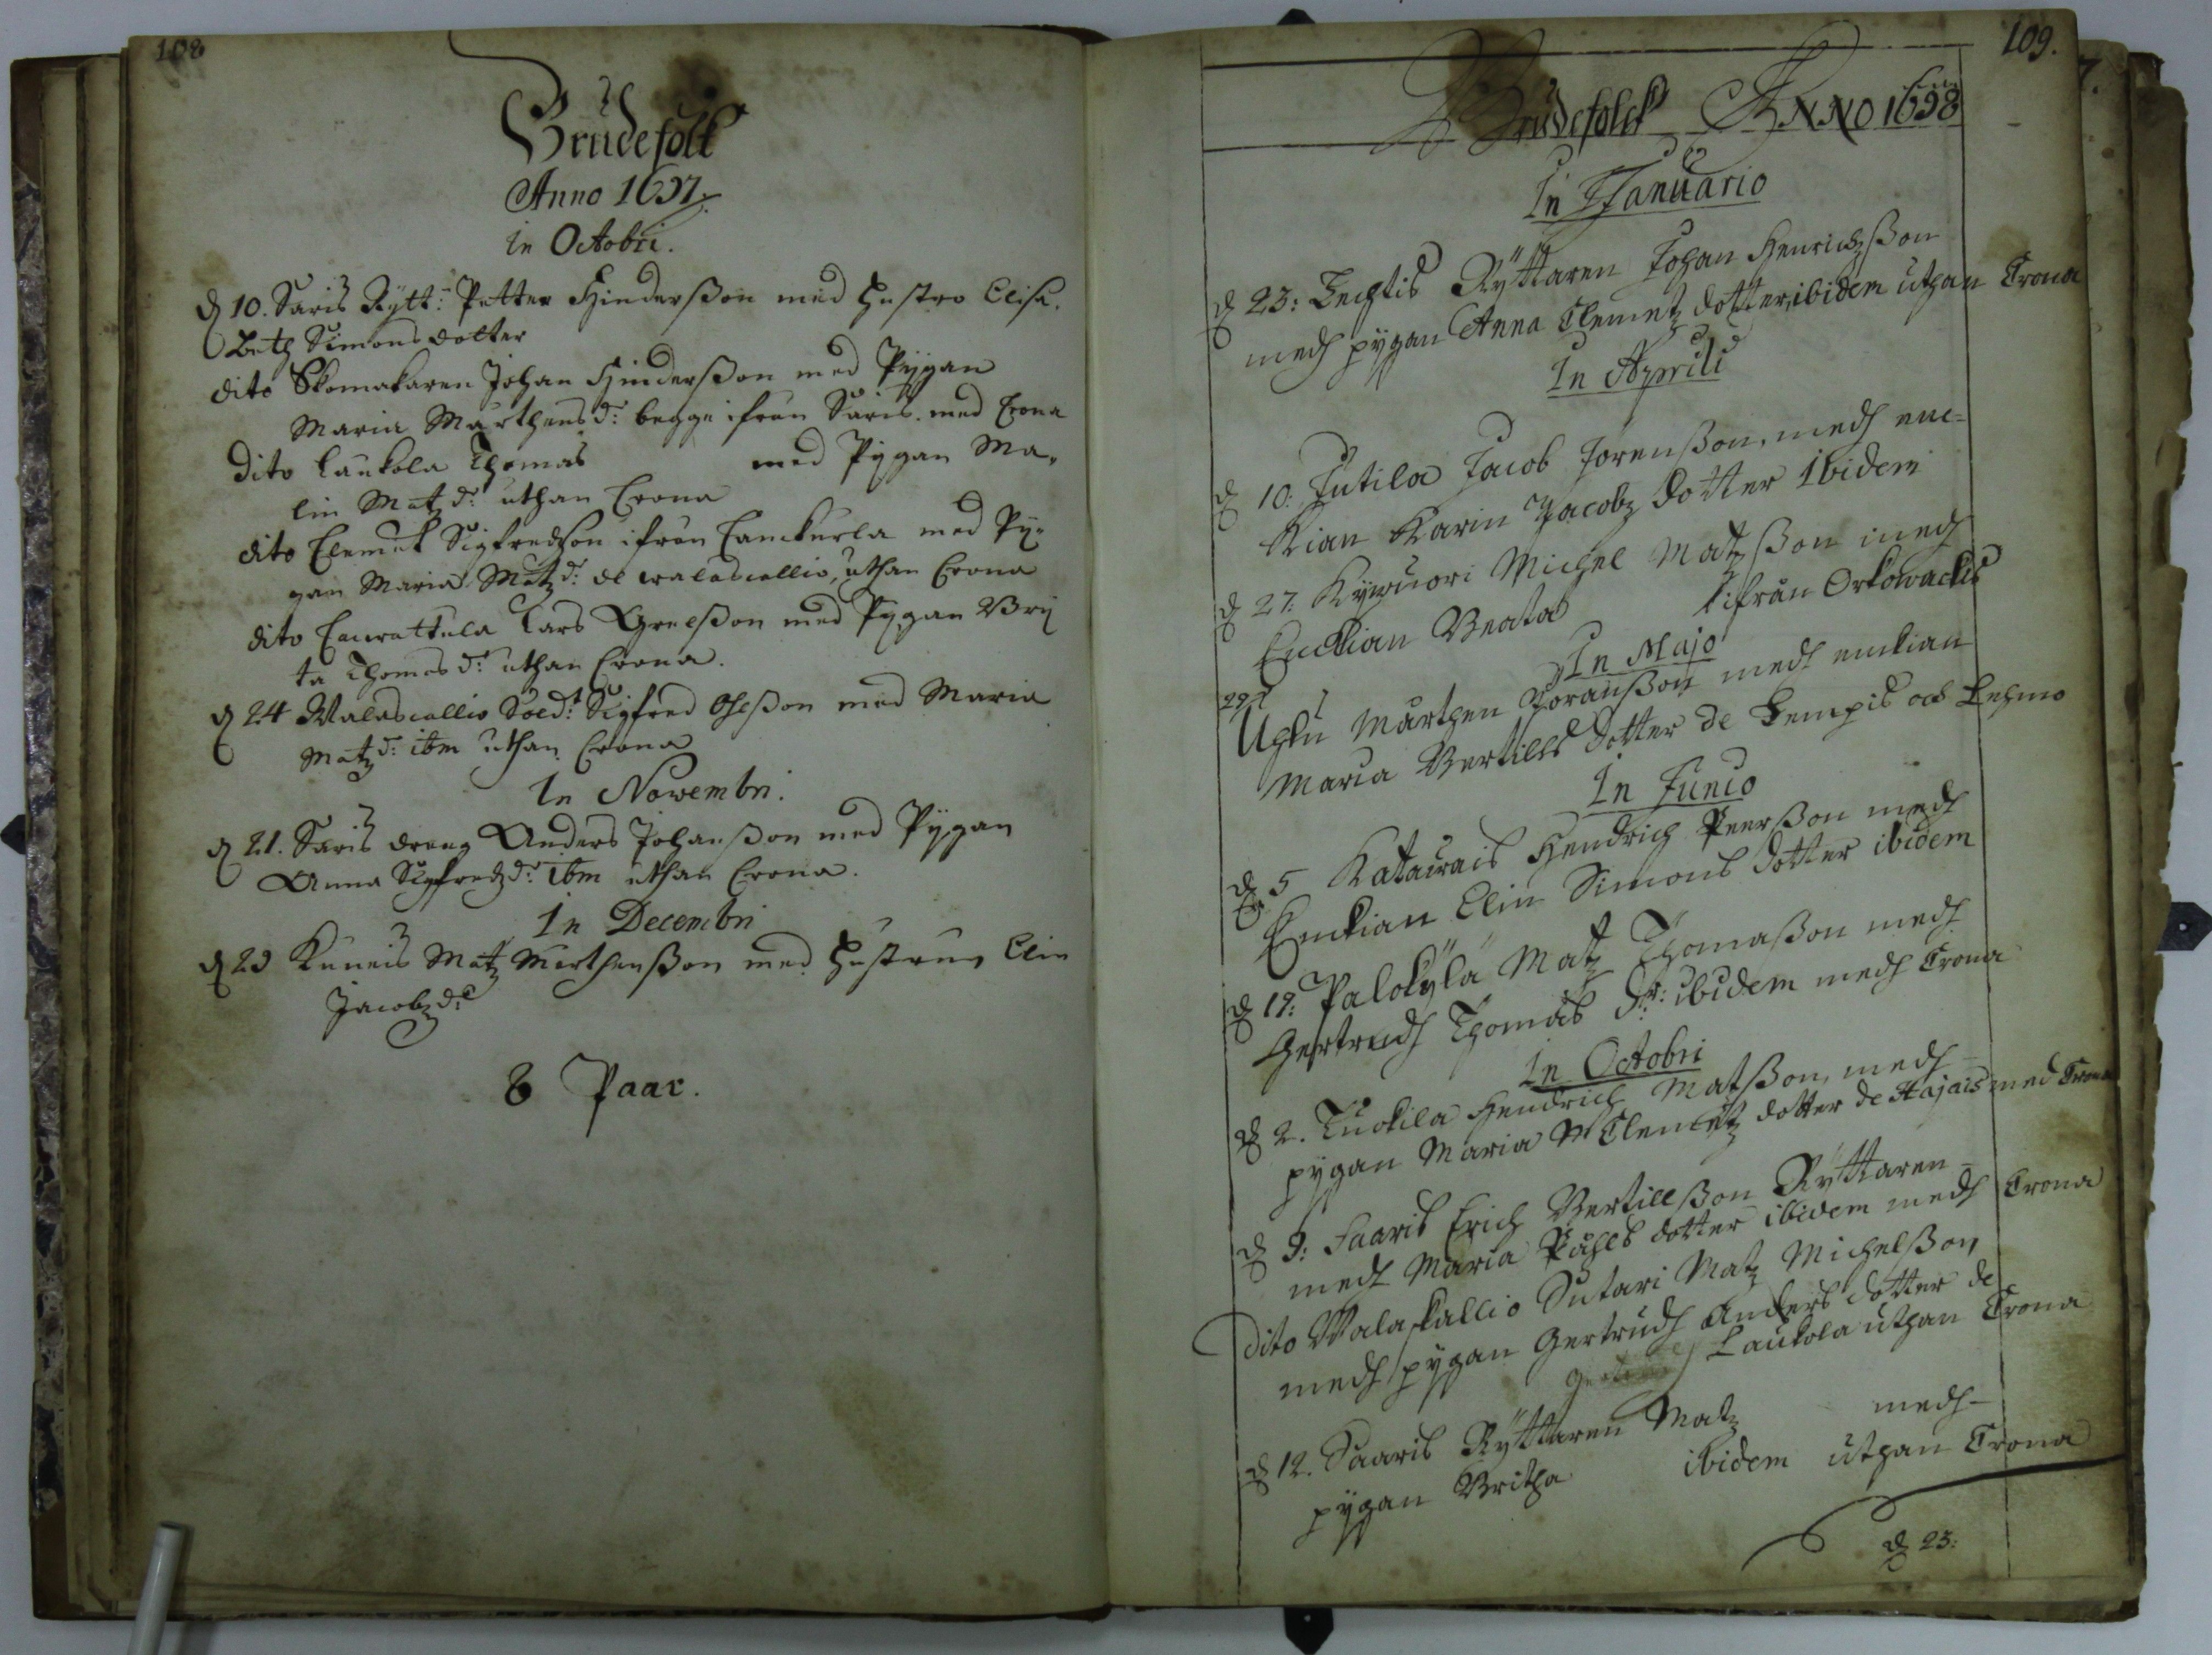 108
Brudefolk
Anno 1697.
in Octobri.
d 10. Saris Rÿtt: Petter Hinderßon med hustro Elisa-
Beth Simons dotter
dito Skomakaren Johan Hinderßon med Pÿgan
Maria Mårthens d: begge ifrån Saris. med Crona
dito Laukola Thomas med Pÿgan Ma-
lin Matz d: uthan Crona
dito Clemet Sigfredson ifrån Lanckurla med Pÿ-
gan Maria Matz d: de walascallio, uthan Crona
dito Lauwattula Lars Greelßon med Pÿgan Brÿ
ta Thomas d: uthan Crona.
d 24 Walascallio Sold: Sigfred Oleßon med Maria
Matz d: ibm uthan Crona
In Nowembri.
d 21. Saris dreng Anders Johanßon med Pÿgan
Anna Sigfredz d: ibm uthan Crona.
In Decembri
d 29 Kuneis Matz Marthenßon med hustrun Elin
Jacobz d:
8 Paar.
109.
Brudefolck ANNO 1698
In Januario
d 23: Lechtis Rÿttaren Johan Henrichßon
medh pÿgan Anna Clemetz dotter, ibidem uthan Crona
In Aprili
d 10. Jutila Jacob Jörenßon, medh enc=
kian Karin Jacobz dotter Ibidem
d 27: Kÿwuori Michel Matzßon medh
Enckian Beata ifrån Orkowackis
In Majo
29 Uhlu Mårthen Joranßon medh enckian
Maria Bertills dotter de Lempis och Lehmo
In Junio
d 5 Katarais Hendrich Peerßon medh
Enckian Elin Simons dotter ibidem
d 19: Palokÿlä Matz Thomaßon medh
Gertrudh Thomas dr: ibidem medh Crona
In Octobri
d 2. Tuokila Hendrich Matßon, medh
pÿgan Maria Clemetz dotter de Hajais med Crona
d 9: Saaris Erich Bertillßon Rÿttaren
medh Maria Påhls dotter ibidem medh Crona
dito Walaskallio Sutari Matz Michelßon
medh pÿgan Gertrudh Anders dotter de
Laukola uthan Crona
d 12. Saaris Rÿttaren Matz medh
pÿgan Britha ibidem uthan Crona
d 23: